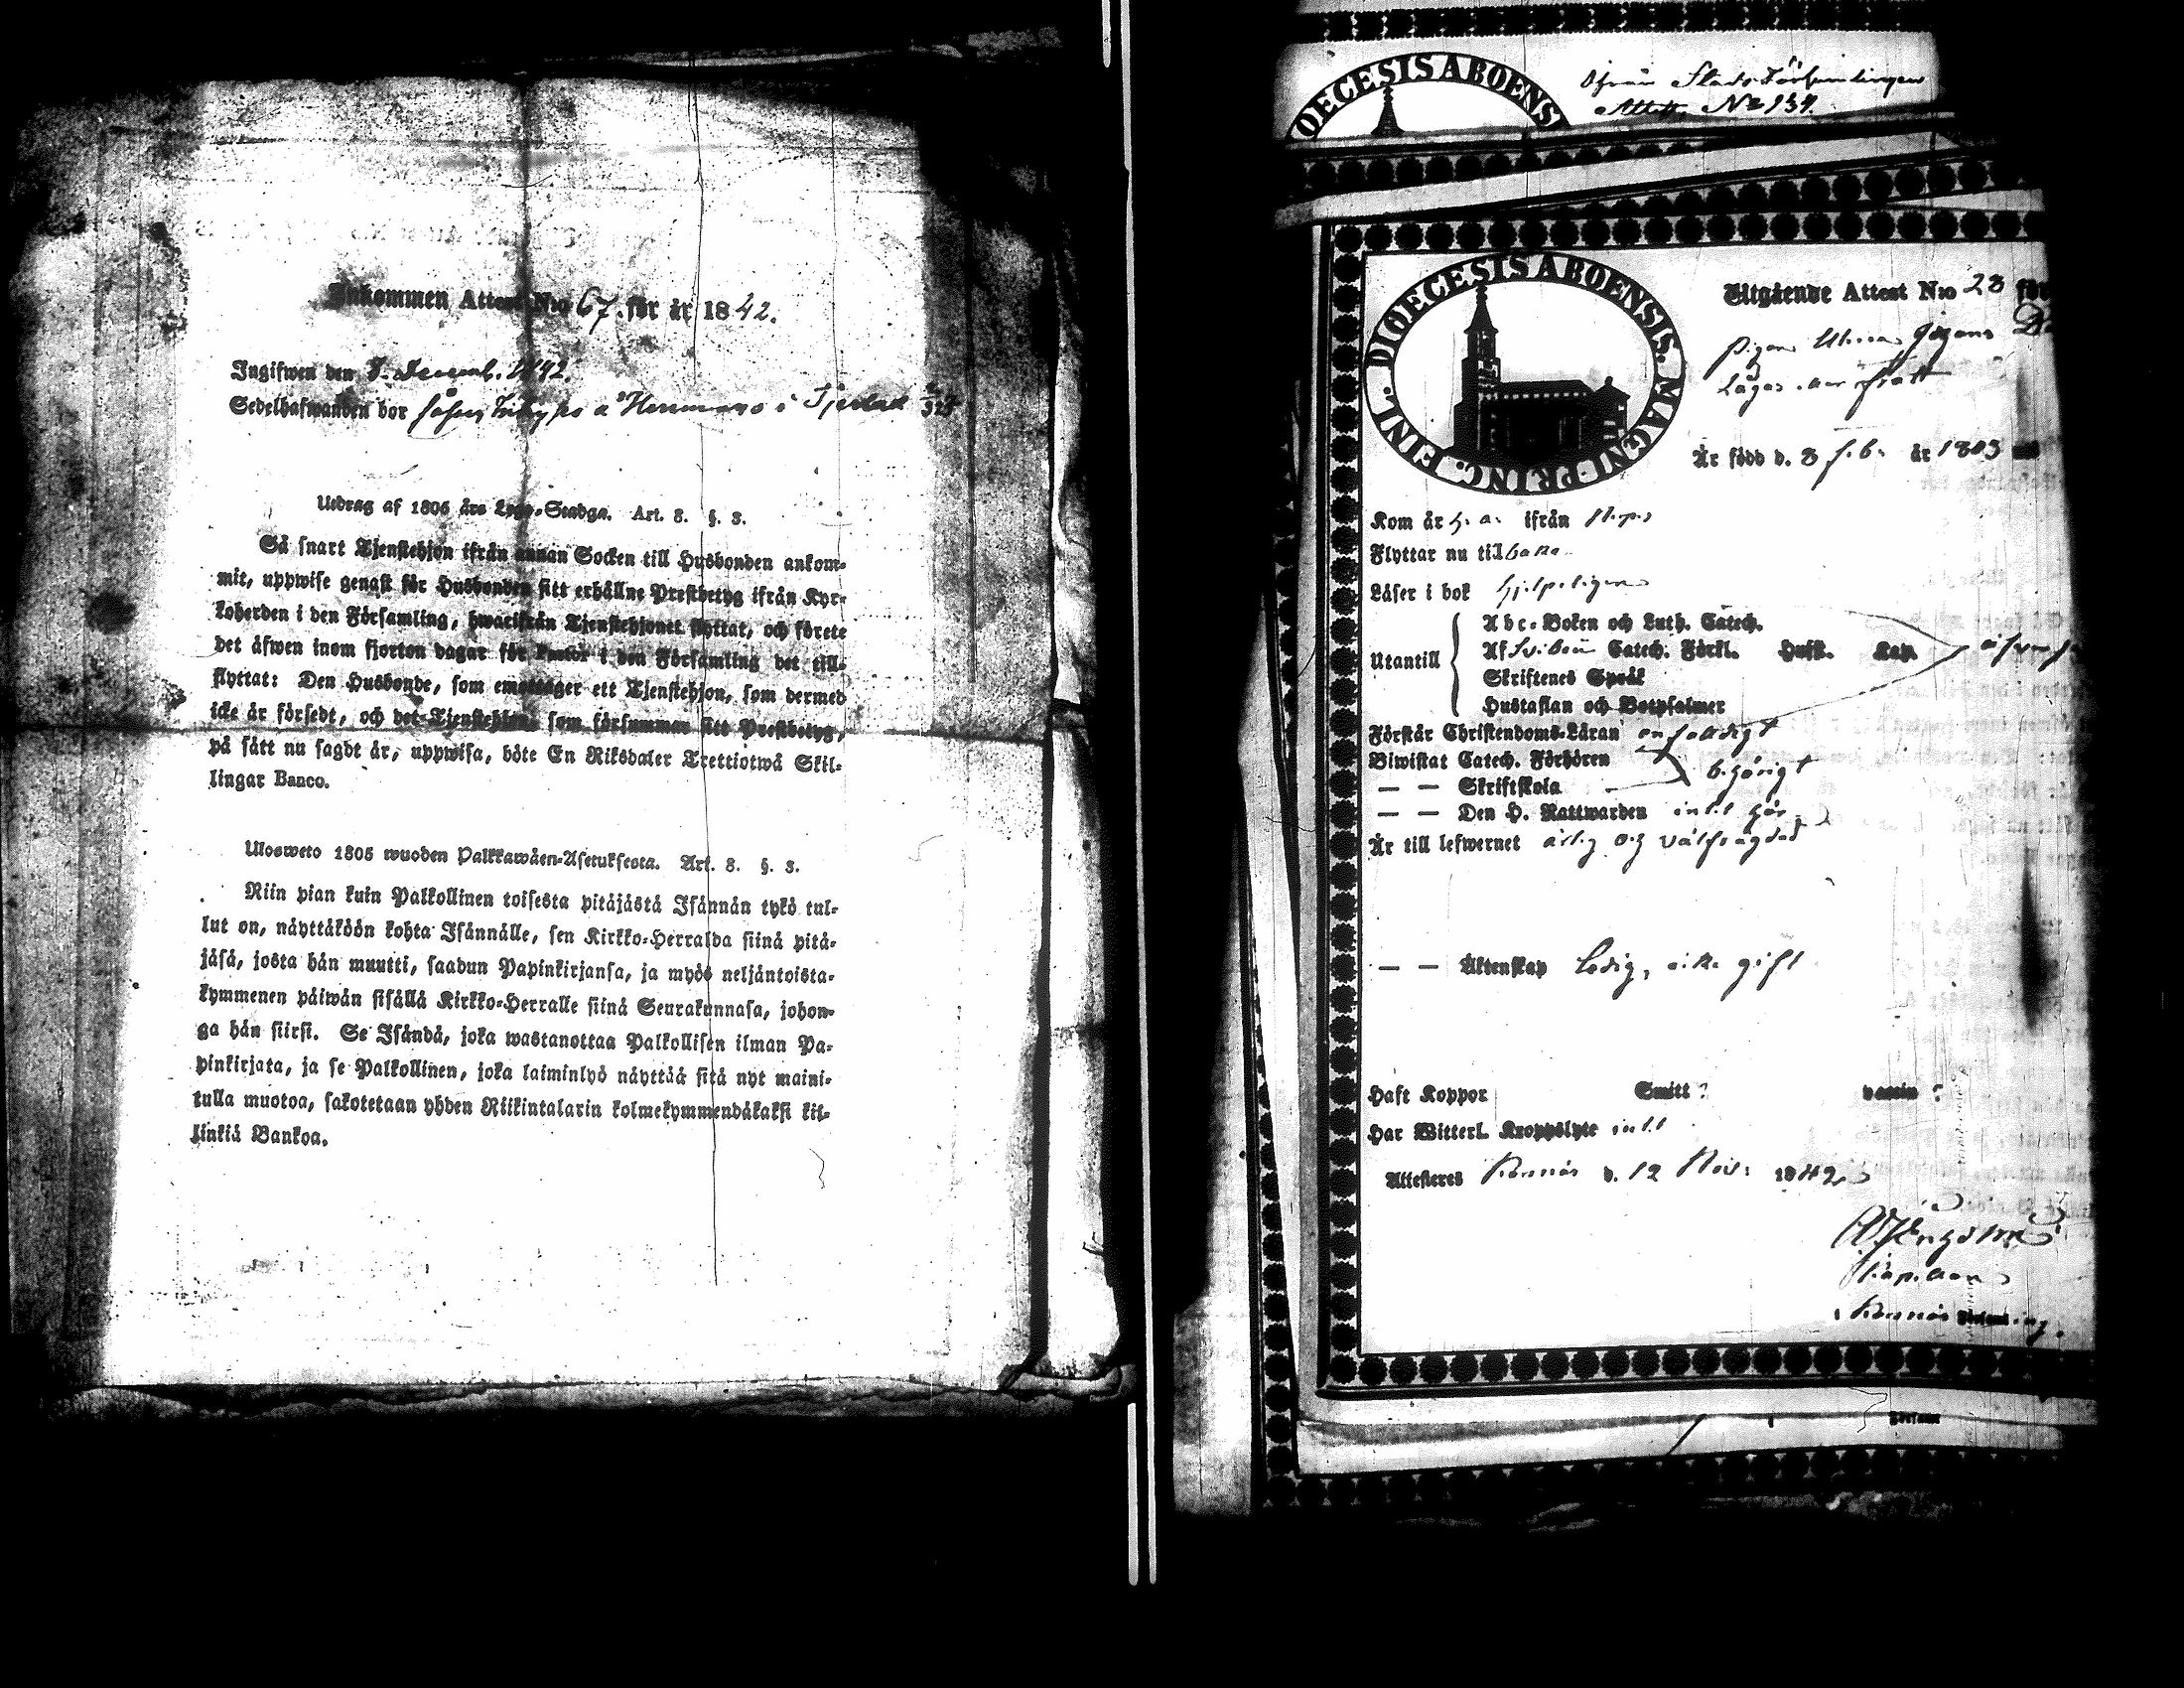 Inkommen Attest N:o 67. för år 1842.
Ingifwen den 3. Decemb. 1842.
Sedelhafwanden bor hos a Hermans i
Utdrag af 1805 års Lego-Stadga. Art. 8. §. 3.
Så snart Tjenstehjon ifrån annan Socken till Husbonden ankom-
mit, uppwise genast för Husbonden sitt erhållne Prestbetyg ifrån Kyr-
koherden i den Församling, hwarifrån Tjenstehjonet flyttat, och förete
det äfwen inom fjorton dagar för Pastor i den Församling det till-
flyttat: Den Husbonde, som emottager ett Tjenstehjon, som dermed
icke är försedt, och det Tjenstehjon, som försummar sitt Prestbetyg,
på sätt nu sagdt är, uppwisa, böte En Riksdaler Trettiotwå Skil-
lingar Banco.
Ulosweto 1805 wuoden Palkkawäen-Asetuksesta. Art. 8. §. 3.
Niin pian kuin Palkollinen toisesta pitäjästä Isännän tykö tul-
lut on, näyttäköön kohta Isännälle, sen Kirkko-Herralda siinä pitä-
jäsä, josta hän muutti, saadun Papinkirjansa, ja myös neljäntoista-
kymmenen päiwän sisällä Kirkko-Herralle siinä Seurakunnasa, johon-
ga hän siirsi. Se Isändä, joka wastanottaa Palkollisen ilman Pa-
pinkirjata, ja se Palkollinen, joka laiminlyö näyttää sitä nyt maini-
tulla muotoa, sakotetaan yhden Riikintalarin kolmekymmendäkaksi kil-
linkiä Bankoa.
OECESIS ABOENS
Ifrån Stads Församlingen
Attest, N:o 134.
DIOECESIS ABOENSIS. MAGNI PRINC. FINL.
Utgående Attest N:o 23 för
Pigan Johans
Är född d. 3 feb. år 1803
Kom år h. a. ifrån
Flyttar nu tillbaka
Läser i bok hjelpeligen
Utantill
Abc-Boken och Luth. Catech.
Af Svibelii Catech. Förkl. Hufst. Kap.
Skriftenes Språk
Hustaflan och Botpsalmer
Förstår Christendoms-Läran enfaldigt
Biwistat Catech. Förhören
— — Skriftskola behörigt
— — Den H. Nattwarden intet här
Är till lefwernet ärlig och välfrägdad
— — Äktenskap Ledig, icke gift
Haft Koppor Smitt? vaccin?
Har Witterl. Kroppslyte intet
Attesteras d. 12 Nov: 1842
Kapellan
Församling.
Församl